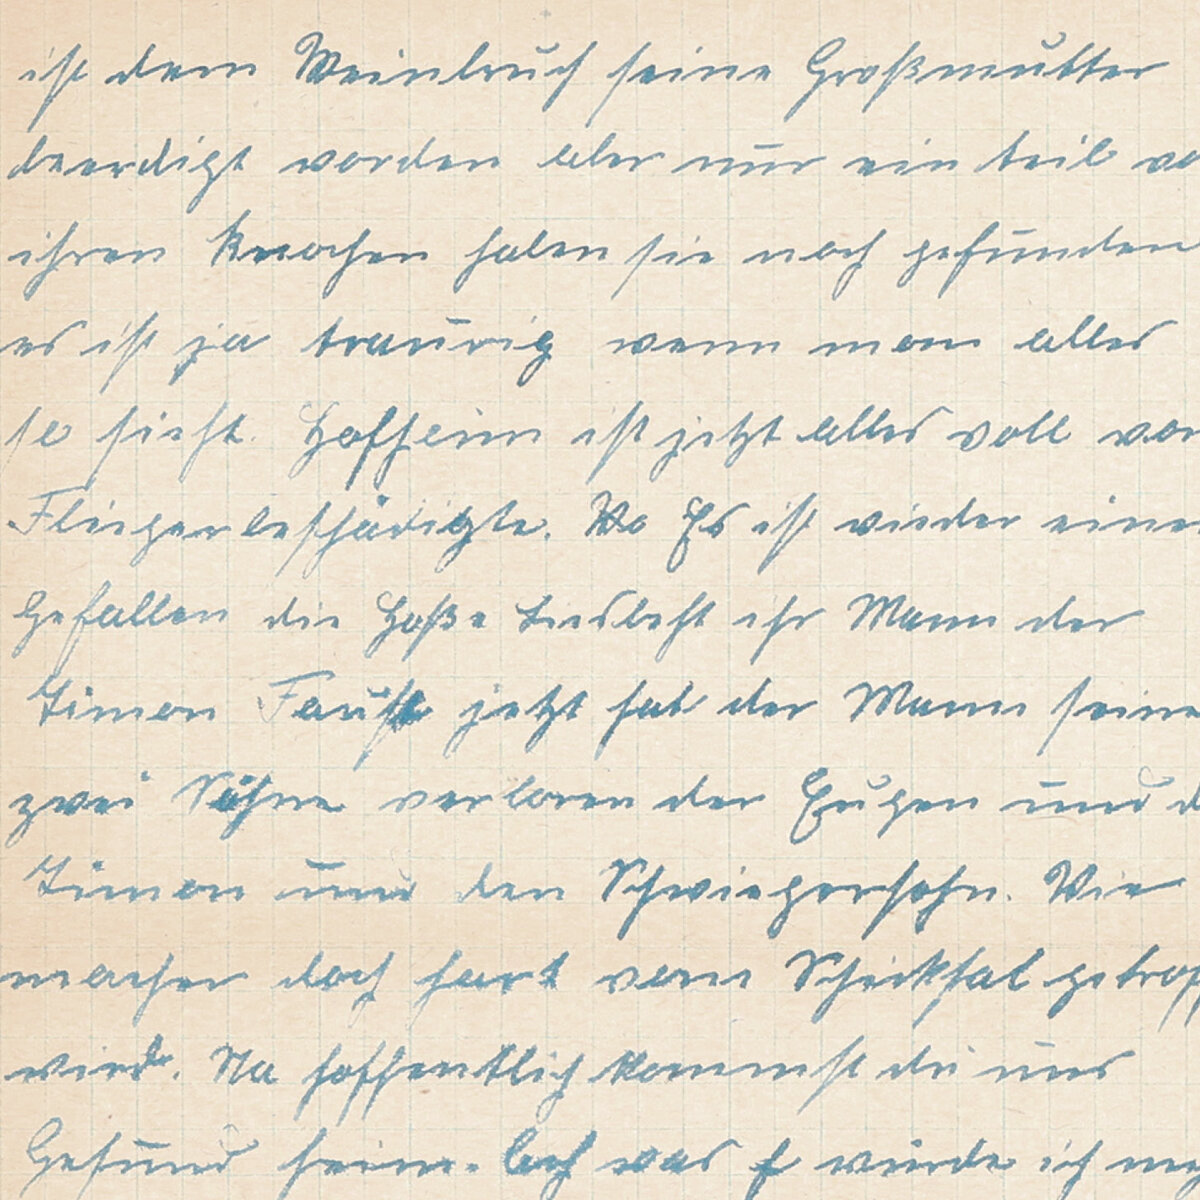 ist dem Weinbruch seine Großmutter
beerdigt worden aber nur ein teil vo
ihren Knochen haben sie noch gefunden
es ist ja traurig wenn man alles
so sieht. Hofheim ist jetzt alles voll von
Fliegerbeschädigte. Es ist wieder einer
Gefallen die ihr Mann der
Simon Faust jetzt hat der Mann seine
zwei Söhne verloren der Eugen und d
Simon und den Schwiegersohn. Wie
mancher doch hart vom Schicksal getrof
wird. Na hoffentlich kommst du uns
Gesund heim. Ach was würde ich